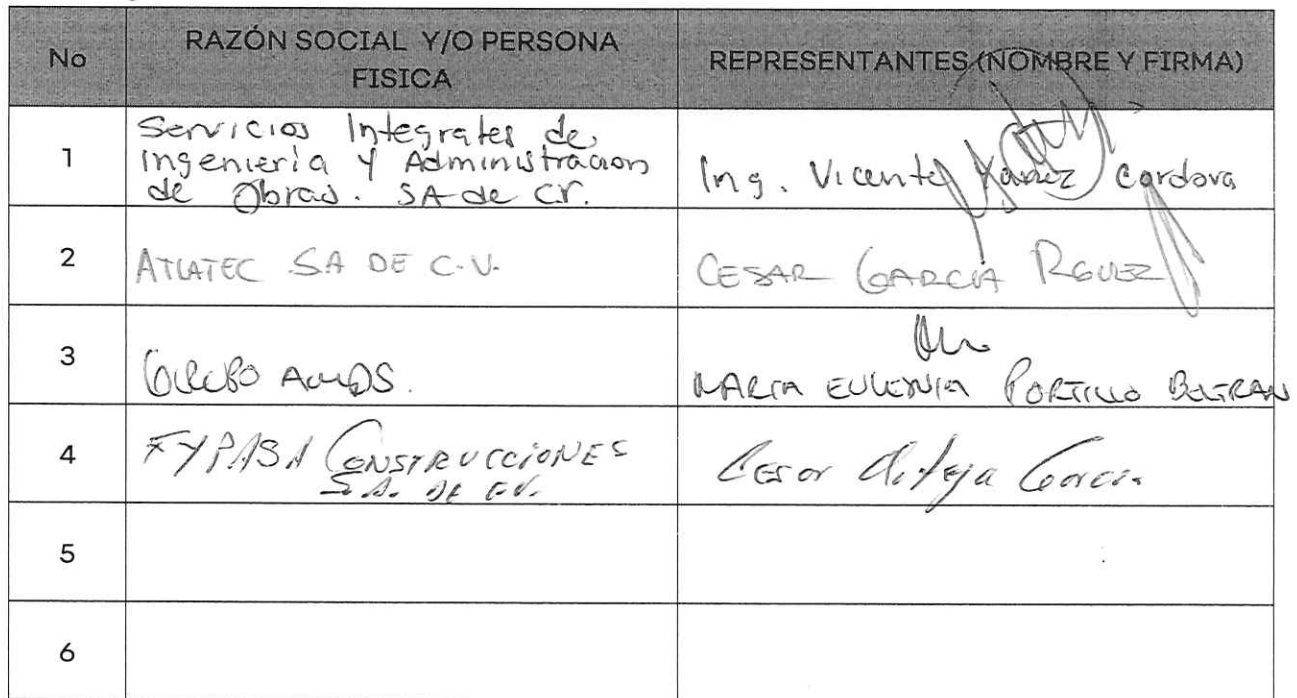 No
RAZÓN SOCIAL Y/O PERSONA
FISICA
REPRESENTANTES (NOMBRE Y FIRMA)
1
Servicios Integrales de
Ingenieria y Administracion
de Obras. SA de CV.
Ing. Vicente Yañez Cordova
2
ATLATEC SA DE C.V.
CESAR GARCIA RGUEZ
3
GRUPO
MARIA EUGENIA PORTILLO BELTRAN
4
FYPASA CONSTRUCCIONES
S.A. DE C.V.
Cesar Garcia
5
6